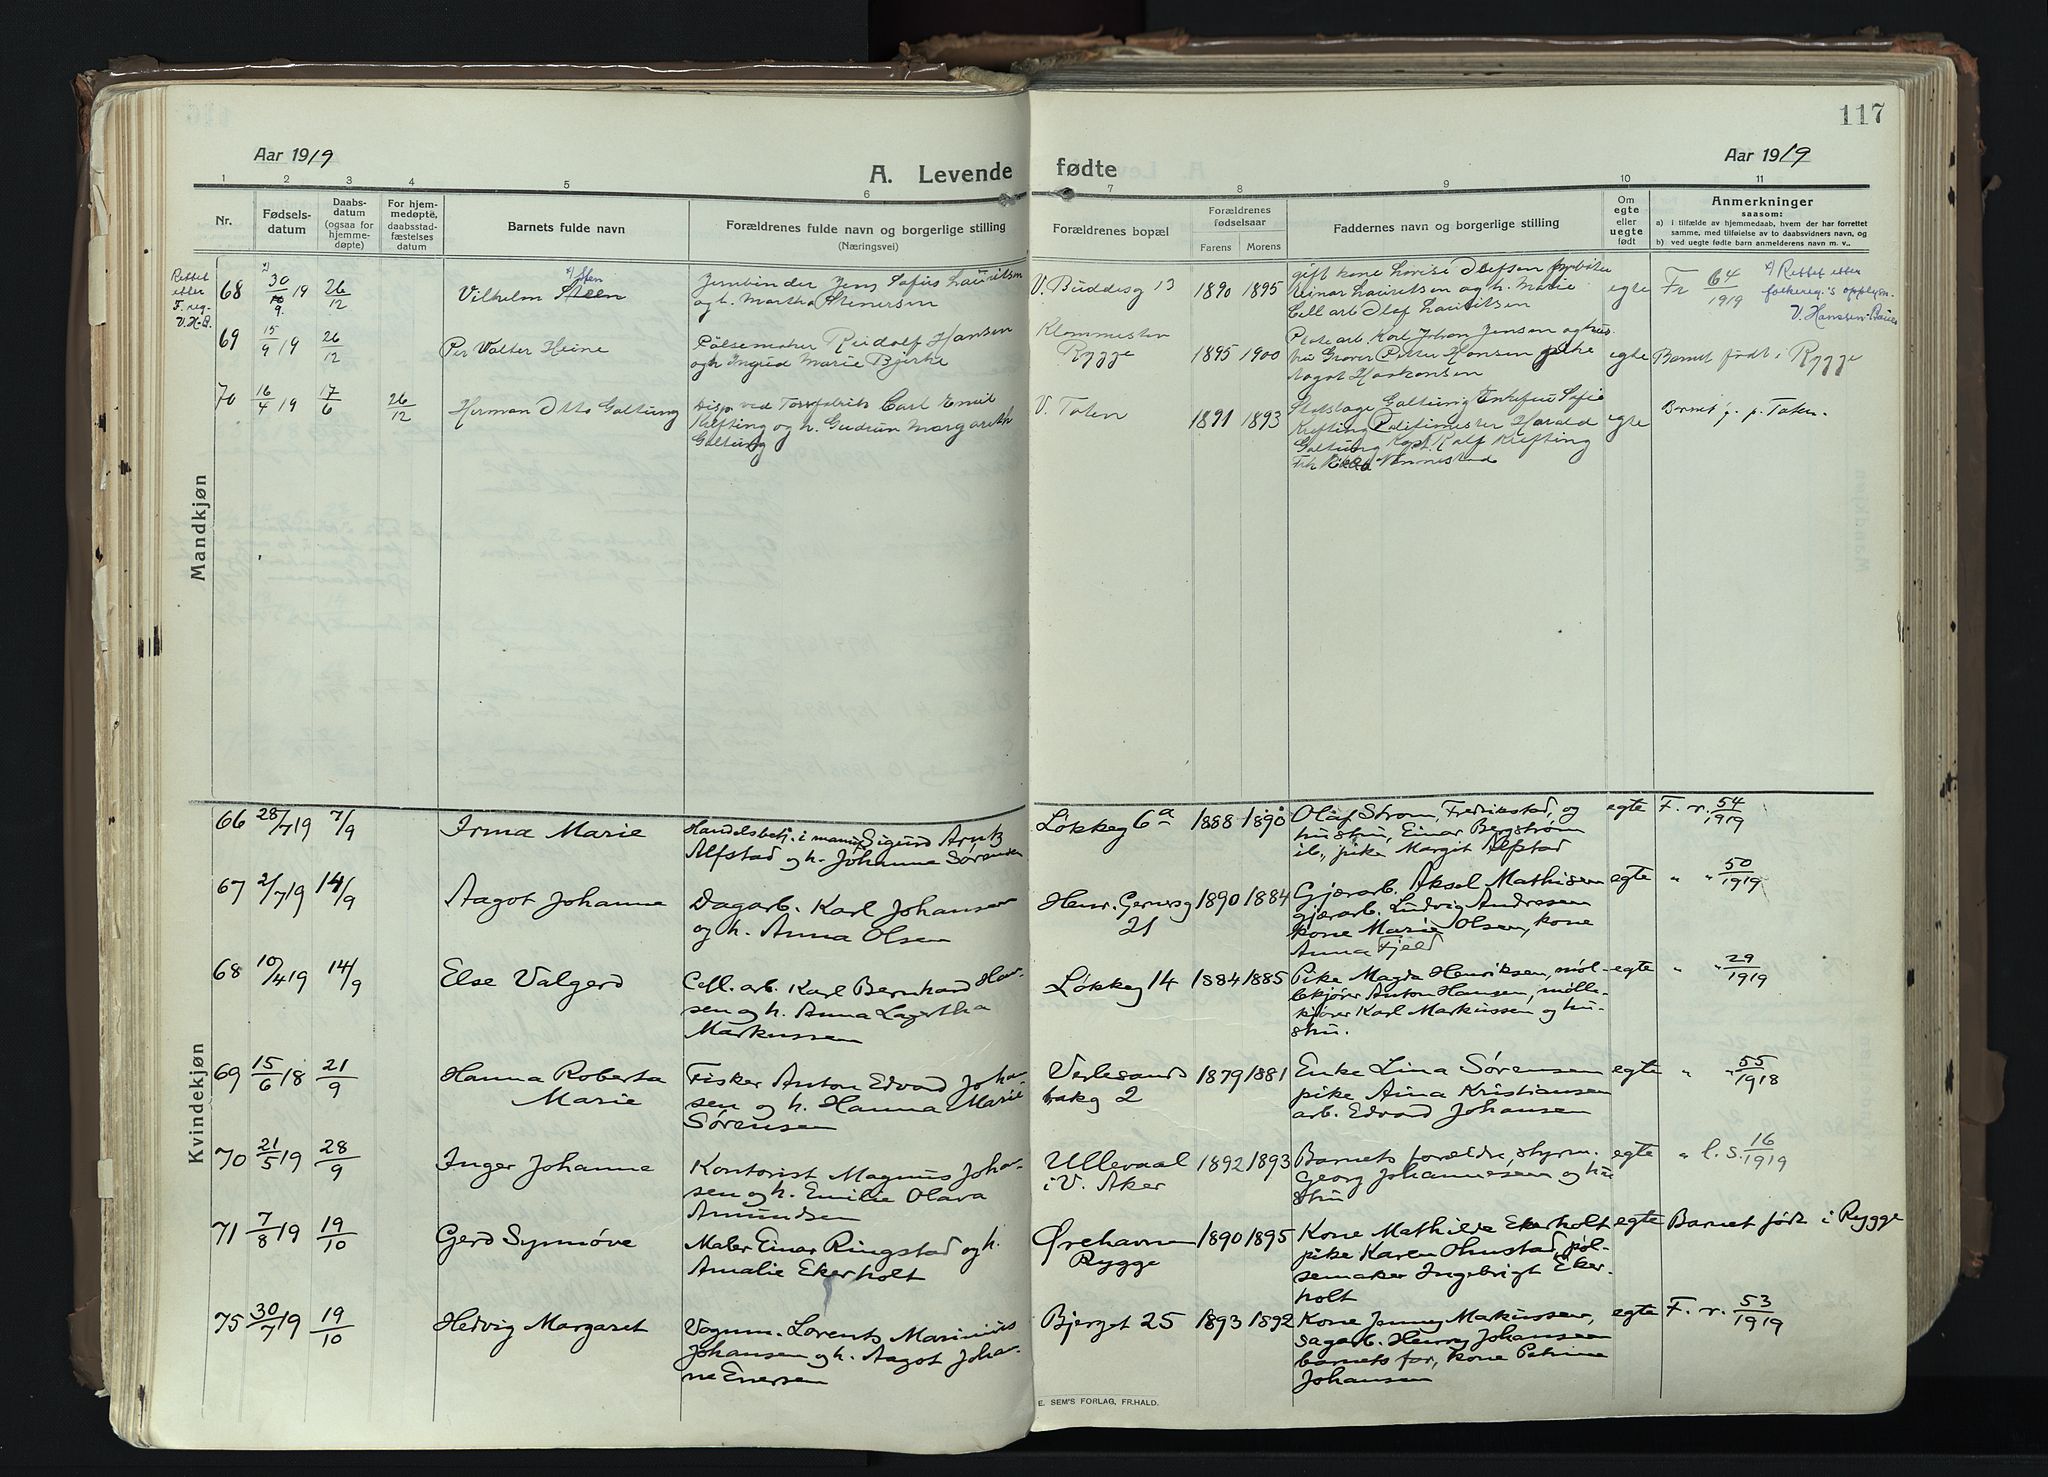 117
Aar 1919
A. Levende fødte
Aar 1919
1 2 3 4 5 6 7 8 9 10 11
Nr.
Fødsels-
datum
Daabs-
datum
(ogsaa for
hjemme-
døpte)
For hjem-
medøpte,
daabsstad-
fæstelses
datum
Barnets fulde navn
Forældrenes fulde navn og borgerlige stilling
(Næringsvei)
Forældrenes bopæl
Forældrenes
fødselsaar
Farens Morens
Faddernes navn og borgerlige stilling
Om
egte
eller
uegte
født
Anmerkninger
saasom:
a) i tilfælde av hjemmedaab, hvem der har forrettet
samme, med tilføielse av to daabsvidners navn, og
b) ved uegte fødte barn anmelderens navn m. v..
Rettet
etter
F. reg.
V. H-B.
Mandkjøn
68 30/9 19 26/12
Vilhelm Steen
x) Sten
Jernbinder Jens Sofus Lauritsen
og h. Martha Stenersen
V. Buddesg 13
1890 1895
gift kone Lovise Olefsen fyrbøter
Einar Lauritsen og h. Marie
Cell arb Olef Lauritsen
egte
Fr 64/1919
x) Rettet etter
folkereg.'s opplysn.
V. Hanssen-Bauer
69 15/9 19 26/12
Per Walter Heine
Pølsemaker Reidolf Hansen
og h Ingrid Marie Bjerke
Rygge
1895 1900
Karl Johan Jensen og hus
tru Grover Petter Hansen pike
Aagot Haakonsen
egte
Barnet født i Rygge
70 16/4 19 17/6 26/12
Herman Otto Galtung
Disp. ved Carl Emil
Krefting og h. Gudrun Margarethe
Galtung
V. Toten
1891 1893
Galtung Enkefru Sofie
Krefting Politimester Harald
Galtung Kapt. Rolf Krefting
Frk
egte
Barnet f. p. Toten.
Kvindekjøn
66 28/7 19 7/9
Irma Marie
Handelsbetj. i manuf. Sigurd Arntz
Alfstad og h. Johanne Sørensen
Løkkeg 6a
1888 1890
Olaf Strøm, Fredrikstad, og
hustru, Einar Bergstrøm
ib., pike Margit Alfstad
egte
F. r. 54/1919
67 2/7 19 14/9
Aagot Johanne
Dagarb. Karl Johansen
og h. Anna Olsen
Henr. Gernersg
21
1890 1884
Gjærarb. Aksel Mathisen
gjærarb. Ludvig Andresen
kone Marie Olsen, kone
Anna Fjeld
egte
" " 50/1919
68 10/4 19 14/9
Else Valgerd
Cell. arb. Karl Bernhard Han-
sen og h. Anna Lagertha
Markussen
Løkkeg 14
1884 1885
Pike Magda Henriksen, møl-
lekjører Anton Hansen, mølle-
kjører Karl Markussen og hu-
stru.
egte
" " 29/1919
69 15/6 18 21/9
Hanna Roberta
Marie
Fisker Anton Edvard Johan-
sen og h. Hanna Marie
Sørensen
Værlesands
bakg 2
1879 1881
Enke Lina Sørensen
pike Aina Kristiansen
arb. Edvard Johansen
egte
" " 55/1918
70 21/5 19 28/9
Inger Johanne
Kontorist Magnus Johan-
sen og h. Emilie Olava
Amundsen
Ullevaal
i V. Aker
1892 1893
Barnets forældre, styrm.
Georg Johannesen og hu
stru
egte
" l. s. 16/1919
71 7/8 19 19/10
Gerd Synnøve
Maler Einar Ringstad og h.
Amalie Ekerholt
Ørehavna
Rygge
1890 1895
Kone Mathilde Ekerholt
pike Karen Ohnstad, pøl-
semaker Ingebrigt Eker-
holt
egte
Barnet født i Rygge
75 30/7 19 19/10
Hedvig Margaret
Vognm. Lorents Marinius
Johansen og h. Aagot Johan-
ne Enersen
Bjerget 25
1893 1892
Kone Jenny Markussen,
sagarb. Henry Johansen
barnets far, kone Petrine
Johansen
egte
F. r. 53/1919
E. SEM'S FORLAG, FR.HALD.